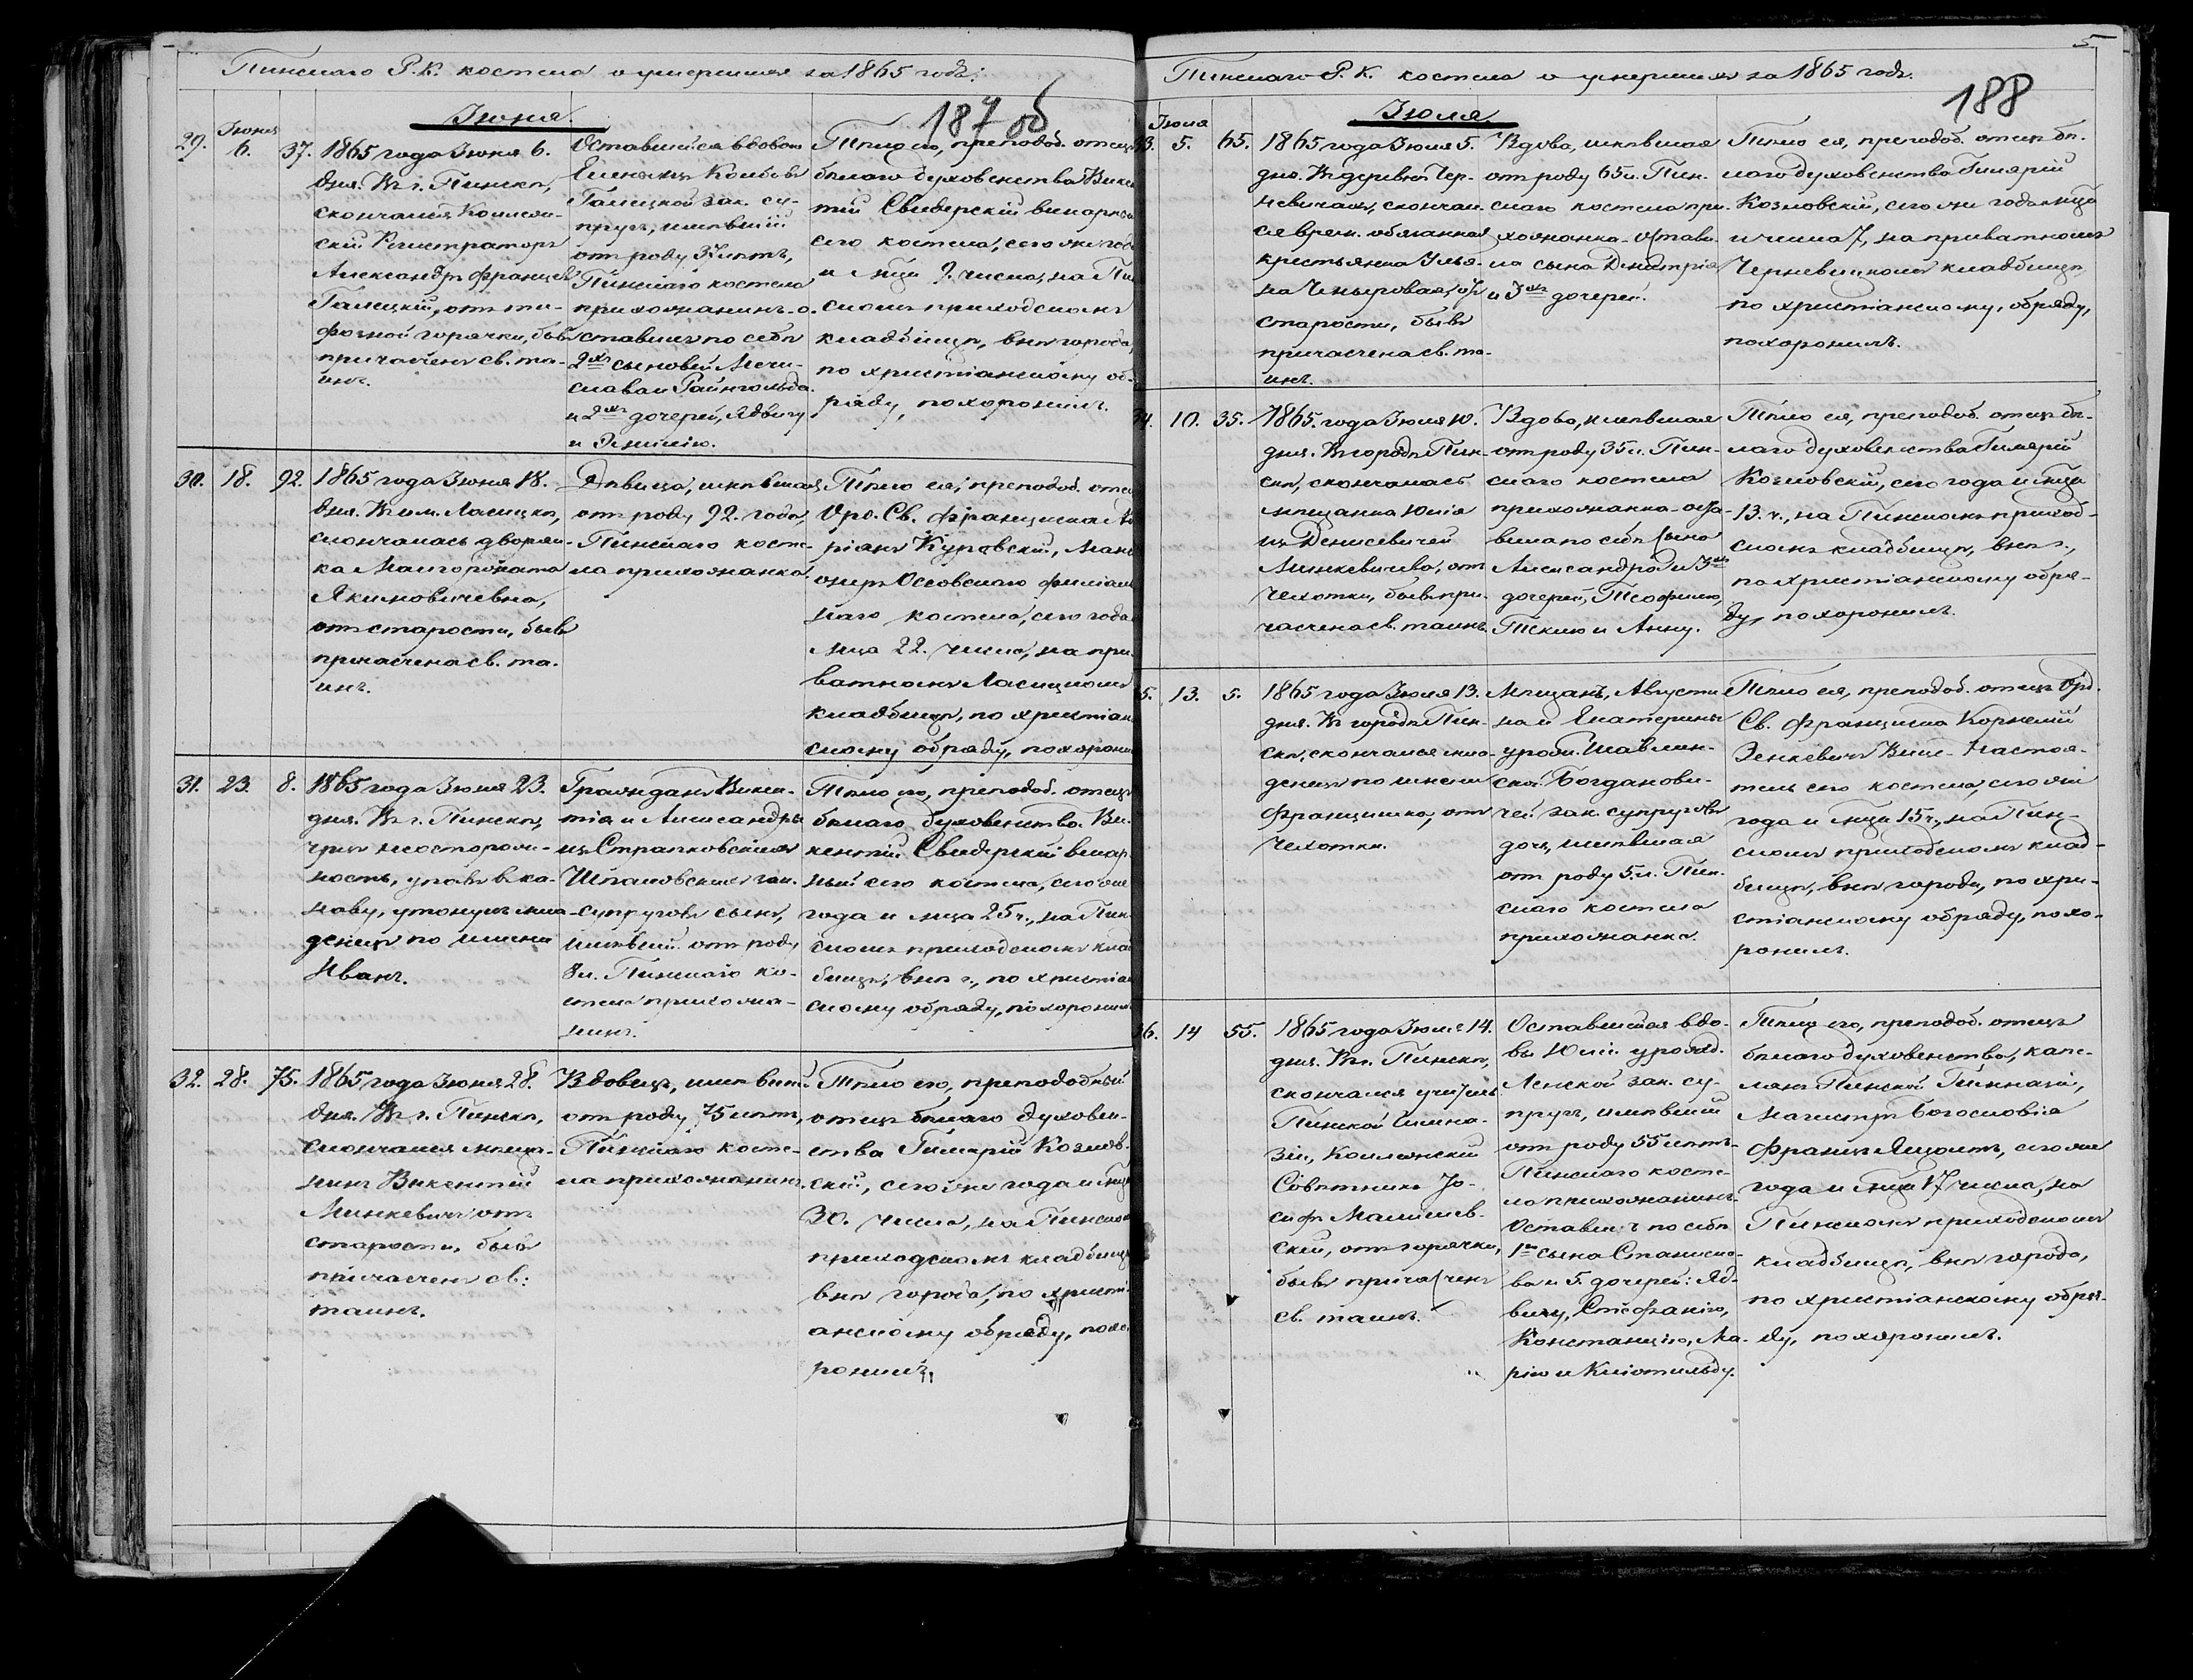 Пинскаго Р. К. костела о умершихъ за 1865 годъ.
187 об
Іюня.
29.
Іюня
6.
37.
1865 года Іюня 6.
дня. Въ г. Пинскѣ,
скончался Коллеж-
скій Регистраторъ
Александръ Францовъ
Галецкій, отъ ти-
фозной горячки, бывъ
причащенъ св. та-
инъ.
Оставшейся вдовою
Галецкой зак. су-
пругъ, имѣвшій
отъ роду 37 лѣтъ,
Пинскаго костела
прихожанинъ. о-
ставилъ по себѣ
2хъ сыновей Мечи-
слава и Райнгольда
и 2хъ дочерей, Ядвигу
и Эмилію.
Тѣло его, преподоб. отецъ
бѣлаго духовенства Викен
тій Свидерскій викарный
сего костела, сего же года
и мца 9. числа, на Пин
скомъ приходскомъ
кладбищѣ, внѣ города,
по христіанскому об-
ряду, похоронилъ.
30.
18.
92.
1865 года Іюня 18.
дня. Въ им. Ласицкѣ,
скончалась дворян-
ка Малгоржата
Якимовичевна,
отъ старости, бывъ
причащена св. та-
инъ.
Дѣвица, имѣвшая
отъ роду 92. года,
Пинскаго косте-
ла прихожанка.
Тѣло ея, преподоб. отецъ
Орд. Св. Франциска
ріанъ Куровскій,
онеръ Оссовскаго филіаль
наго костела, сего года
мца 22. числа, на при
ватномъ Ласицкомъ
кладбищѣ, по христіан
скому обряду, похорони
31.
23.
8.
1865 года Іюня 23.
дня. Въ г. Пинскѣ,
чрезъ неосторож-
ность, упавъ въ ка-
наву, утонулъ мла-
денецъ по имени
Иванъ.
Гражданъ Викен-
тія и Александры
изъ Страпковскихъ
Шпаковскихъ зак.
супруговъ сынъ,
имѣвшій отъ роду
8 л. Пинскаго ко-
стела прихожа-
нинъ.
Тѣло его, преподоб. отецъ
бѣлаго духовенства Ви-
кентій Свидерскій викар
ный сего костела, сего же
года и мца 25 ч., на Пин
скомъ приходскомъ клад
бищѣ, внѣ г., по христіан
скому обряду, похоронилъ
32.
28.
75.
1865 года Іюня 28.
дня. Въ г. Пинскѣ,
скончался мѣща-
нинъ Викентій
Минкевичъ отъ
старости, бывъ
причащенъ св:
таинъ.
Вдовецъ, имѣвшій
отъ роду 75 лѣтъ,
Пинскаго косте-
ла прихожанинъ.
Тѣло его, преподобный
отецъ бѣлаго духовен-
ства Гиларій Козлов-
скій, сего же года и мца
30. числа, на Пинскомъ
приходскомъ кладбищѣ
внѣ города, по христі-
анскому обряду, похо-
ронилъ.
5
Пинскаго Р. К. костела о умершихъ за 1865 годъ.
188
Іюля.
33.
Іюля
5.
65.
1865 года Іюля 5.
дня. Въ деревнѣ Чер-
невичахъ, скончал-
ся врем. обязанная
крестьянка Улья-
на отъ
старости, бывъ
причащена св. та-
инъ.
Вдова, имѣвшая
отъ роду 65 л. Пин-
скаго костела при-
хожанка. Остави-
ла сына Дмитрія
и 3хъ дочерей.
Тѣло ея, преподоб. отецъ бѣ-
лаго духовенства Гиларій
Козловскій, сего же года и мца
и числа 7, на приватномъ
Черневицкомъ кладбищѣ,
по христіанскому, обряду,
похоронилъ.
34.
10.
35.
1865. года Іюля 10.
дня. Въ городѣ Пин-
скѣ, скончалась
мѣщанка Юлія
изъ Денисевичей
Линкевичева, отъ
чахотки, бывъ при-
чащена св. таинъ.
Вдова, имѣвшая
отъ роду 35 л. Пин-
скаго костела
прихожанка-оста-
вила по себѣ сына
Александра и 3хъ
дочерей, Теофилю,
Теклю и Анну.
Тѣло ея, преподоб. отецъ бѣ-
лаго духовенства Гиларій
Козловскій, сего года и мца
13. ч., на Пинскомъ приход-
скомъ кладбищѣ, внѣ г.,
по христіанскому обря-
ду, похоронилъ.
35.
13.
5.
1865 года Іюля 13.
дня. Въ городѣ Пин-
скѣ, скончался мла-
денецъ по имени
Францишка, отъ
чахотки.
Мѣщанъ, Августи-
на и Екатерины
урожд. Шавлин-
ской Богданови-
чей зак. супруговъ
дочь, имѣвшая
отъ роду 5 л. Пин-
скаго костела
прихожанка.
Тѣло ея, преподоб. отецъ Орд.
Св. Франциска Корнелій
Зенкевичъ Вице-Настоя-
тель сего костела, сего же
года и мца 15 ч., на Пин-
скомъ приходскомъ клад-
бищѣ, внѣ города, по хри-
стіанскому обряду, похо-
ронилъ.
36.
14
55.
1865 года Іюля 14.
дня. Въ г. Пинскѣ,
скончался учитель
Пинской Гимна-
зіи, Коллежскій
Совѣтникъ Іо-
сифъ Малишев-
скій, отъ горячки,
бывъ причащенъ
св. таинъ.
Оставшейся вдо-
вы Юліи урожд.
Ленской зак. су-
пругъ, имѣвшій
отъ роду 55 лѣтъ
Пинскаго косте-
ла прихожанинъ.
Оставилъ по себѣ
1го сына Станисла-
ва и 5. дочерей: Яд-
вигу, Стефанію,
Констанцію, Ма-
рію и Клотильду.
Тѣло его, преподоб. отецъ
бѣлаго духовенства, капе-
ланъ Пинской Гимназіи,
Магистръ Богословія
Францъ Яцолтъ, сего же
года и мца 17 числа, на
Пинскомъ приходскомъ
кладбищѣ, внѣ города,
по христіанскому обря-
ду, похоронилъ.